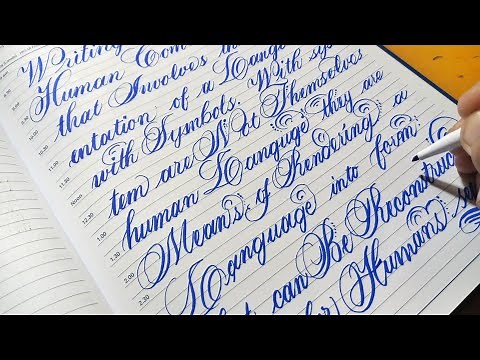 Writing
Human Com
that Involves th
entation of a Lang
with Symbols. With sy
tem are Not Themselves
human Language they are
Means of Rendering a
Language into form
can Be Reconstruc
Humans
10.30
11.00
11.30
Noon
12.30
1.00
1.30
2.00
2.30